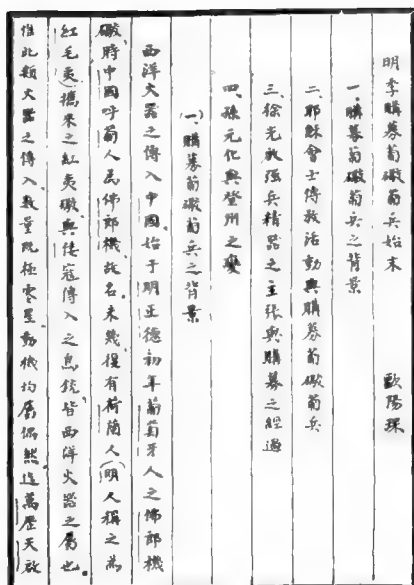 明季購募葡礮葡兵始末　歐陽琛
一、購募葡礮葡兵之背景
二、耶穌會士傳教活動與購募葡礮葡兵
三、徐光啟強兵精器之主張與購募之經過
四、孫元化與登州之變
(一)購募葡礮葡兵之背景
西洋火器之傳入中國,始于明正德初年葡萄牙人之佛郎機
礮,時中國呼葡人為佛郎機,故名。未幾復有荷蘭人(明人稱之為
紅毛夷)攜來之紅夷礮,與倭寇傳入之鳥銃,皆西洋火器之屬也。
惟此類火器之傳入,數量既極零星,動機均屬偶然,迨萬曆天啟